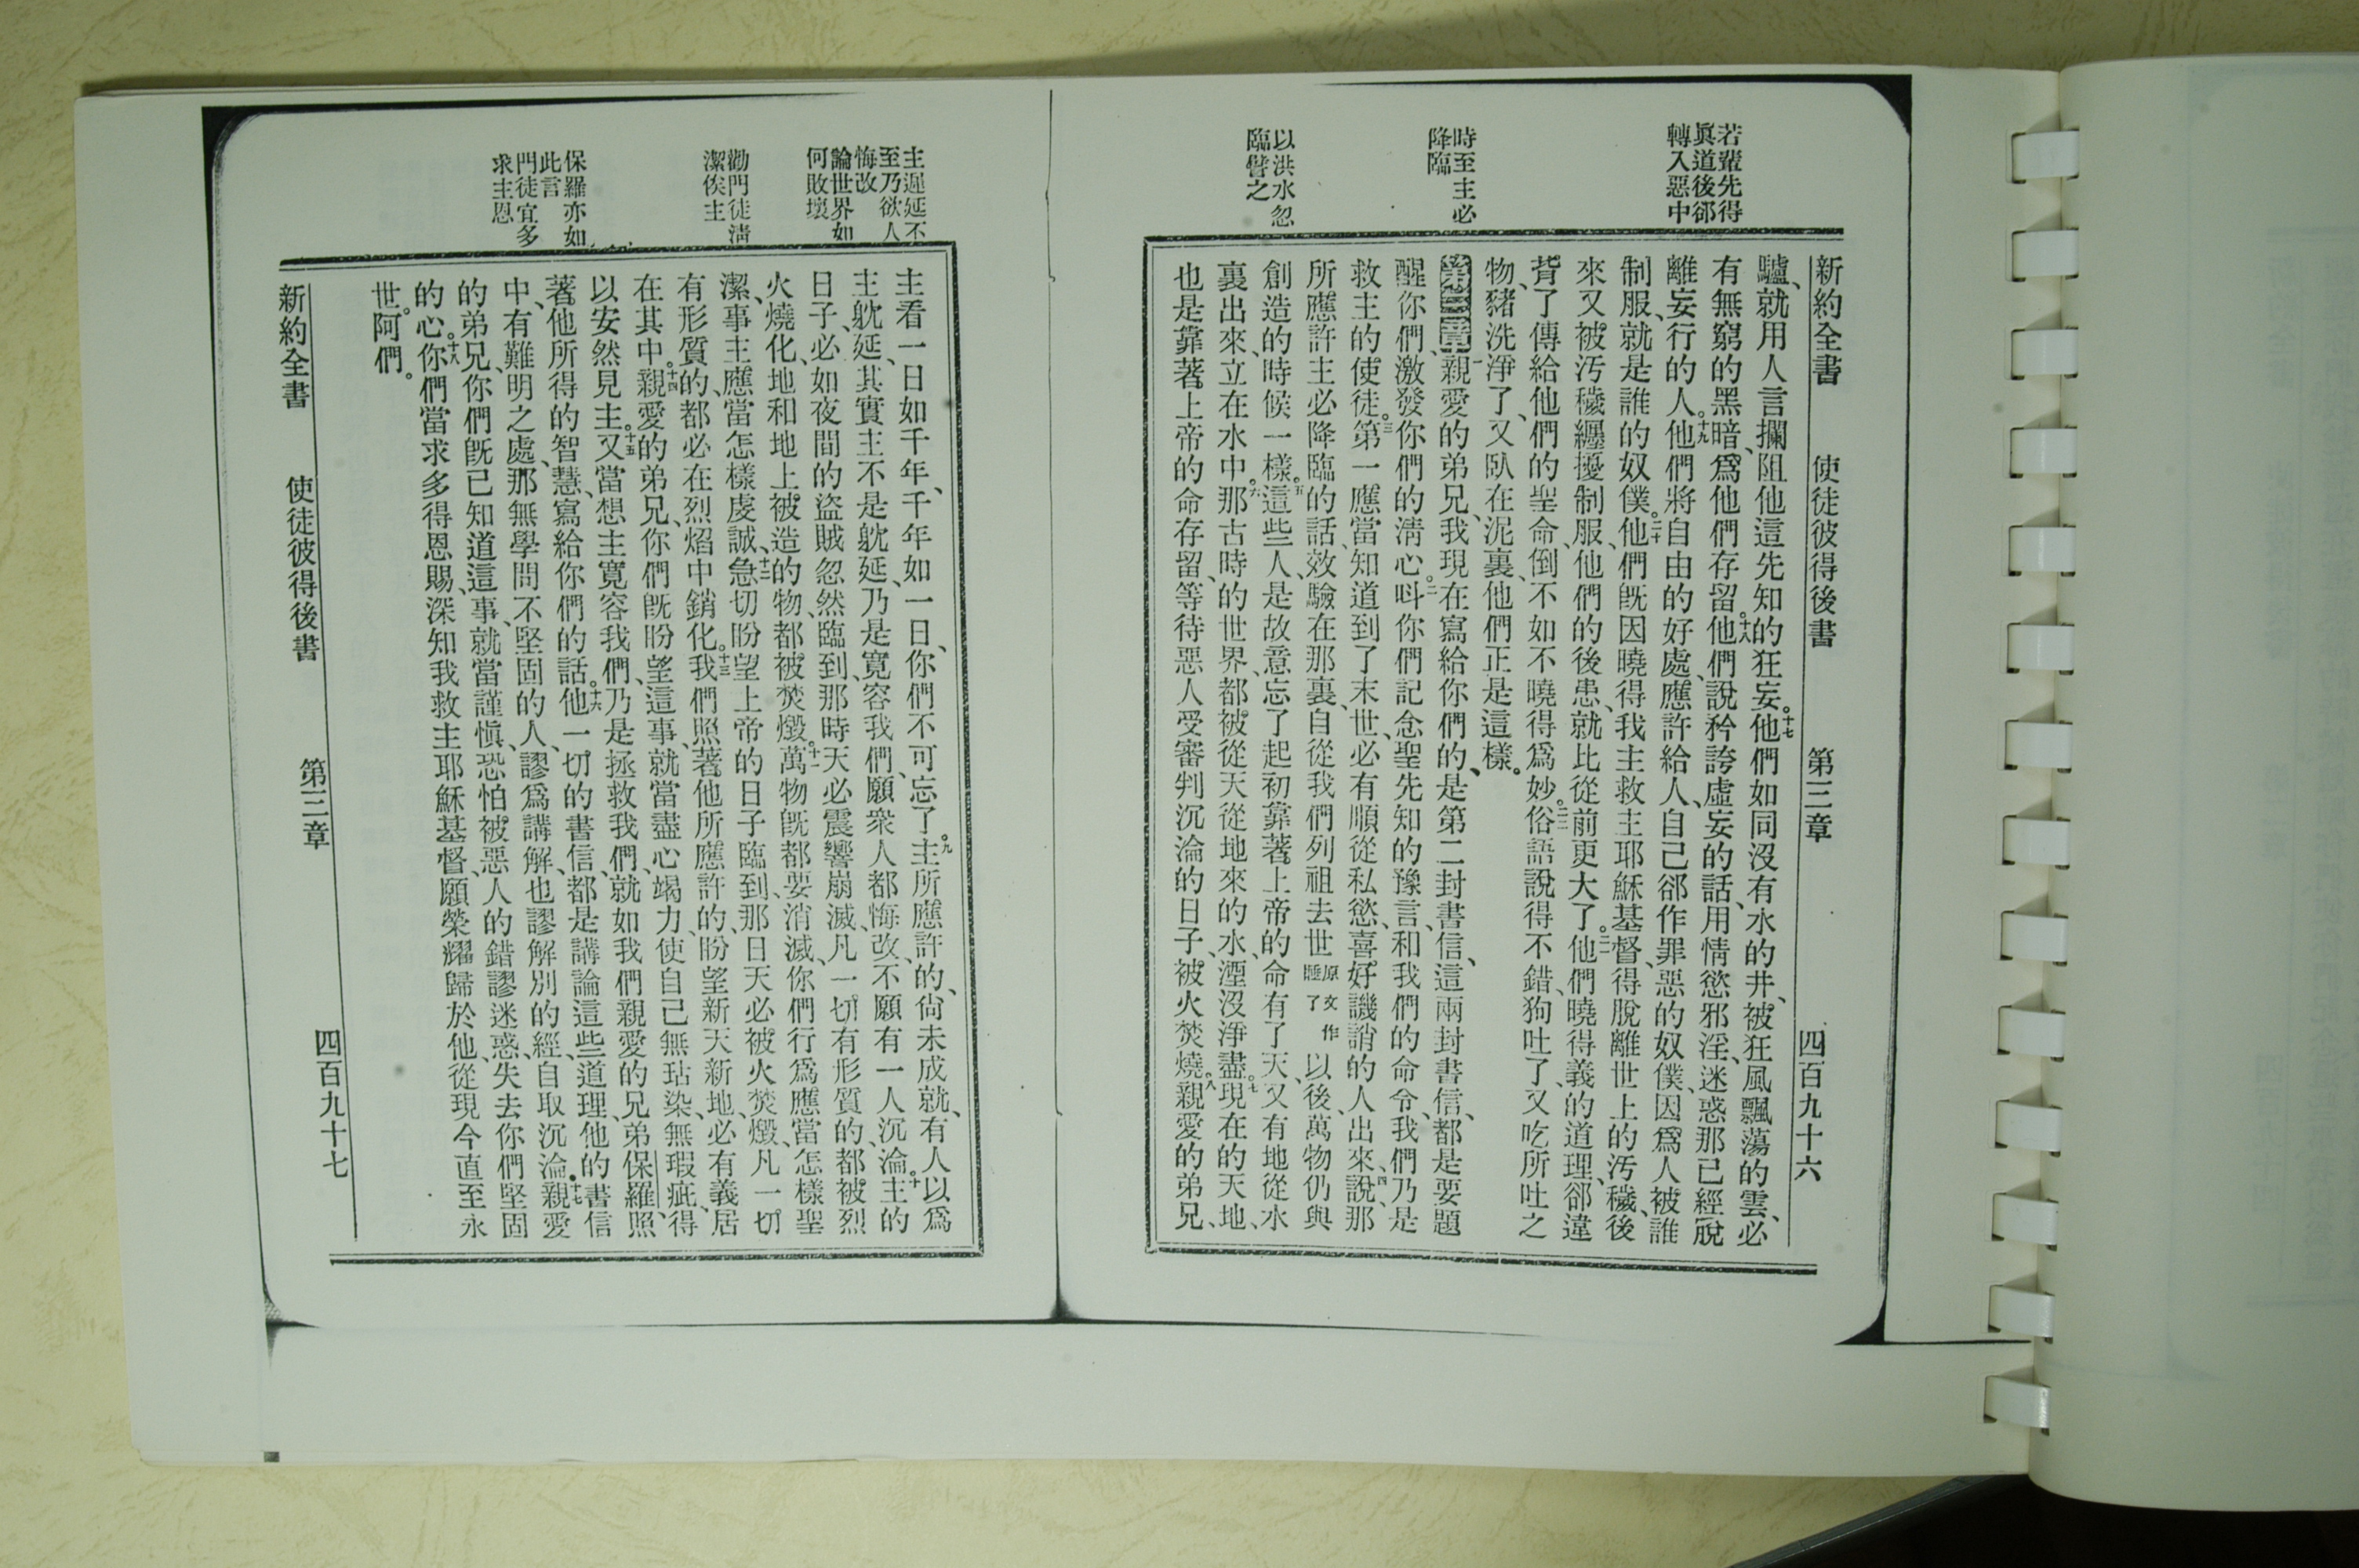 新約全書 使徒彼得後書 第三章 四百九十六
若輩先得
眞道後郤
轉入惡中
時至主必
降臨
以洪水忽
臨譬之
驢、就用人言攔阻他這先知的狂妄。十七他們如同沒有水的井、被狂風飄蕩的雲、必
有無窮的黑暗、爲他們存留。十八他們說矜誇虛妄的話、用情慾邪淫、迷惑那已經脫
離妄行的人。十九他們將自由的好處、應許給人、自己郤作罪惡的奴僕、因爲人被誰
制服、就是誰的奴僕。二十他們旣因曉得我主救主耶穌基督、得脫離世上的汚穢、後
來又被汚穢纒擾制服、他們的後患、就比從前更大了。二一他們曉得義的道理、郤違
背了傳給他們的聖命、倒不如不曉得爲妙。二二俗語說得不錯、狗吐了、又吃所吐之
物、豬洗淨了、又臥在泥裏、他們正是這樣。
第三章一親愛的弟兄、我現在寫給你們的、是第二封書信、這兩封書信、都是要題
醒你們、激發你們的淸心。二呌你們記念聖先知的豫言、和我們的命令、我們乃是
救主的使徒。三第一應當知道到了末世、必有順從私慾、喜好譏誚的人出來、四說、那
所應許主必降臨的話、效驗在那裏、自從我們列祖去世原文作睡了以後、萬物仍與
創造的時候一樣。五這些人、是故意忘了起初靠著上帝的命有了天、又有地從水
裏出來、立在水中。六那古時的世界、都被從天從地來的水、湮沒淨盡。七現在的天地、
也是靠著上帝的命存留、等待惡人受審判沉淪的日子、被火焚燒。八親愛的弟兄、
主遲延不
至乃欲人
悔改
論世界如
何敗壞
勸門徒淸
潔俟主
保羅亦如
此言
門徒宜多
求主恩
主看一日如千年、千年如一日、你們不可忘了。九主所應許的、尙未成就、有人以爲
主躭延、其實主不是躭延、乃是寬容我們、願衆人都悔改、不願有一人沉淪。十主的
日子、必如夜間的盜賊忽然臨到、那時天必震響崩滅、凡一切有形質的、都被烈
火燒化、地和地上被造的物、都被焚燬。十一萬物旣都要消滅、你們行爲應當怎樣聖
潔、事主應當怎樣虔誠、十二急切盼望上帝的日子臨到、那日天必被火焚燬、凡一切
有形質的、都必在烈焰中銷化。十三我們照著他所應許的、盼望新天新地、必有義居
在其中。十四親愛的弟兄、你們旣盼望這事、就當盡心竭力、使自己無玷染、無瑕疵、得
以安然見主。十五又當想主寬容我們、乃是拯救我們、就如我們親愛的兄弟保羅、照
著他所得的智慧、寫給你們的話。十六他一切的書信、都是講論這些道理、他的書信
中、有難明之處、那無學問不堅固的人、謬爲講解、也謬解別的經、自取沉淪。十七親愛
的弟兄、你們旣已知道這事、就當謹愼、恐怕被惡人的錯謬迷惑、失去你們堅固
的心。十八你們當求多得恩賜、深知我救主耶穌基督、願榮耀歸於他、從現今直至永
世。阿們。
新約全書 使徒彼得後書 第三章 四百九十七